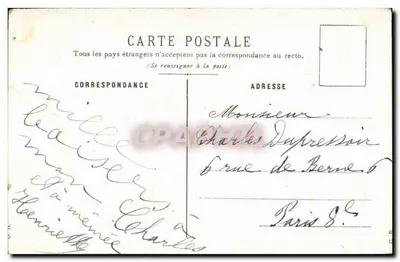 CARTE POSTALE
Tous les pays étrangers n'acceptent pas la correspondance au recto.
(Se renseigner à la poste)
CORRESPONDANCE
ADRESSE
mille
baisers à
mon Charles
et à mémée
Henriette
Monsieur
Charles Dupressoir
6 rue de Berne 6
Paris 8e
CPA